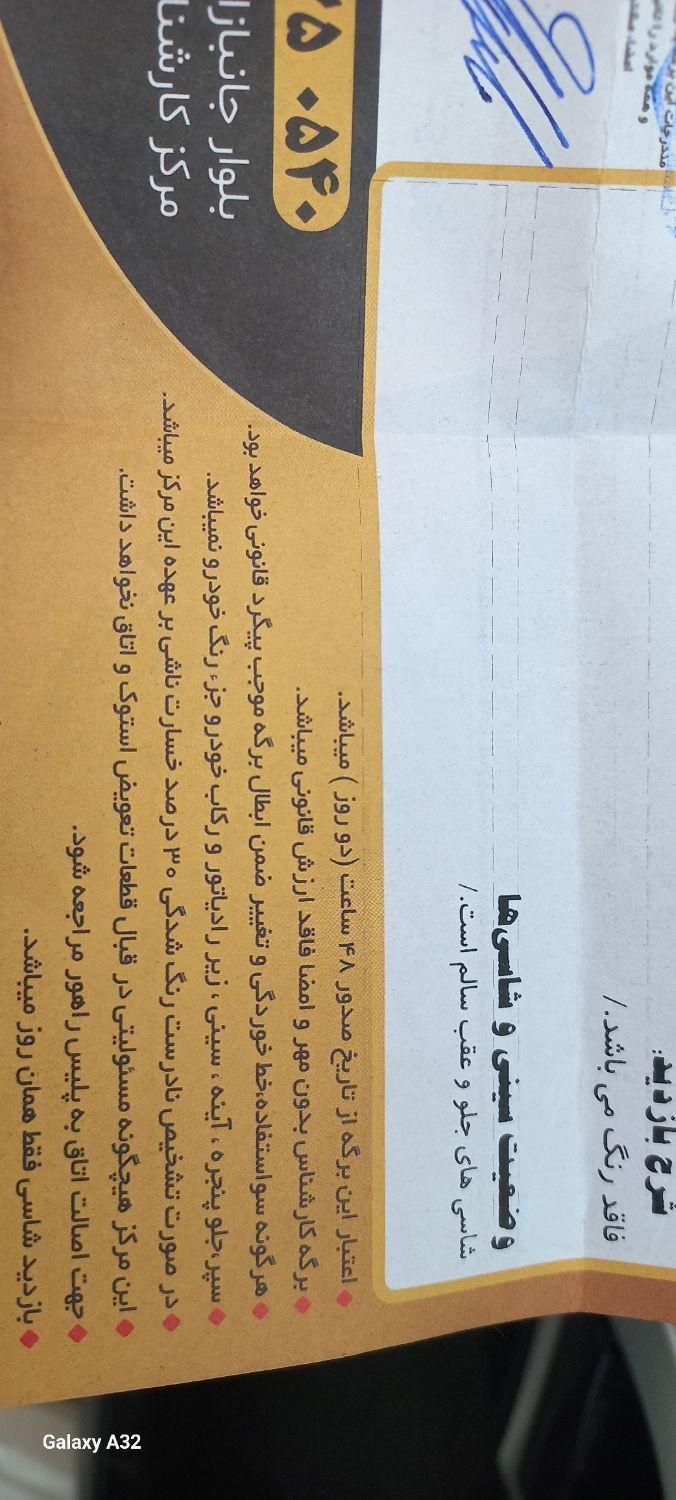 مندرجات این
و همه موارد را
شرح بازدید:
فاقد رنگ می باشد./
وضعیت سینی و شاسی‌ها
شاسی های جلو و عقب سالم است./
اعتبار این برگه از تاریخ صدور ۴۸ ساعت (دو روز ) میباشد.
برگه کارشناس بدون مهر و امضا فاقد ارزش قانونی میباشد.
هرگونه سواستفاده،خط خوردگی و تغییر ضمن ابطال برگه موجب پیگرد قانونی خواهد بود.
سپر،جلو پنجره ، آینه ، سینی ، زیر رادیاتور و رکاب خودرو جزء رنگ خودرو نمیباشد.
در صورت تشخیص نادرست رنگ شدگی ۳۰ درصد خسارت ناشی بر عهده این مرکز میباشد.
این مرکز هیچگونه مسئولیتی در قبال قطعات تعویض استوک و اتاق نخواهد داشت.
جهت اصالت اتاق به پلیس راهور مراجعه شود.
بازدید شاسی فقط همان روز میباشد.
۲۵ ۰۵۴۰
بلوار جانبازا
مرکز کارشنا
Galaxy A32